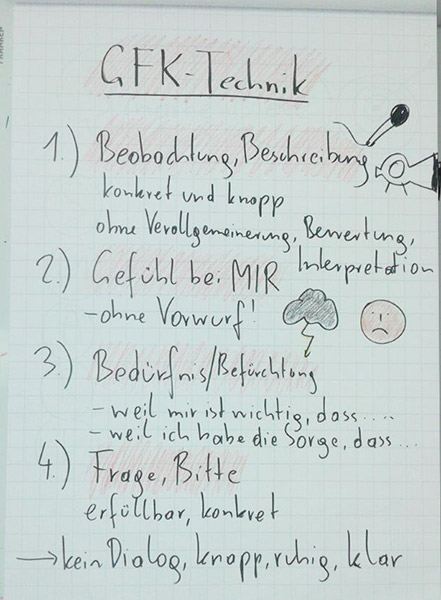 GFK-Technik
1.) Beobachtung, Beschreibung
konkret und knapp
ohne Verallgemeinerung, Bewertung,
Interpretation
2.) Gefühl bei MIR
- ohne Vorwurf!
3.) Bedürfnis/Befürchtung
- weil mir ist wichtig, dass....
- weil ich habe die Sorge, dass...
4.) Frage, Bitte
erfüllbar, konkret
→ kein Dialog, knapp, ruhig, klar